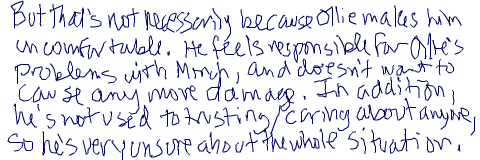 But that's not necessarily because Ollie makes him
uncomfortable. He feels responsible for Ollie's
problems with Mitch, and doesn't want to
cause any more damage. In addition,
he's not used to trusting/caring about anyone,
so he's very unsure about the whole situation.